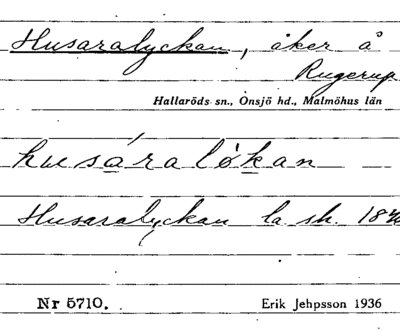 Husaralyckan, åker å
Rugerup
Hallaröds sn., Onsjö hd., Malmöhus län
husáraløkan
Husaralyckan la. sk.
Nr 5710. Erik Jehpsson 1936